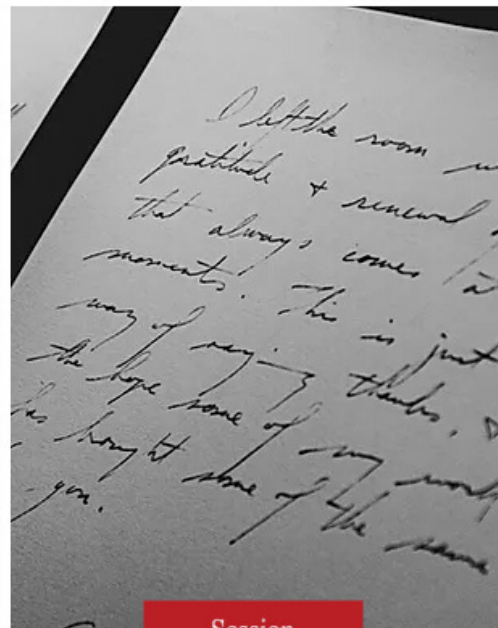 I left the room
gratitude & renewal
that always comes
moments. This is just
way of saying thanks,
the hope some of my work
has brought some of the same
you.
Session